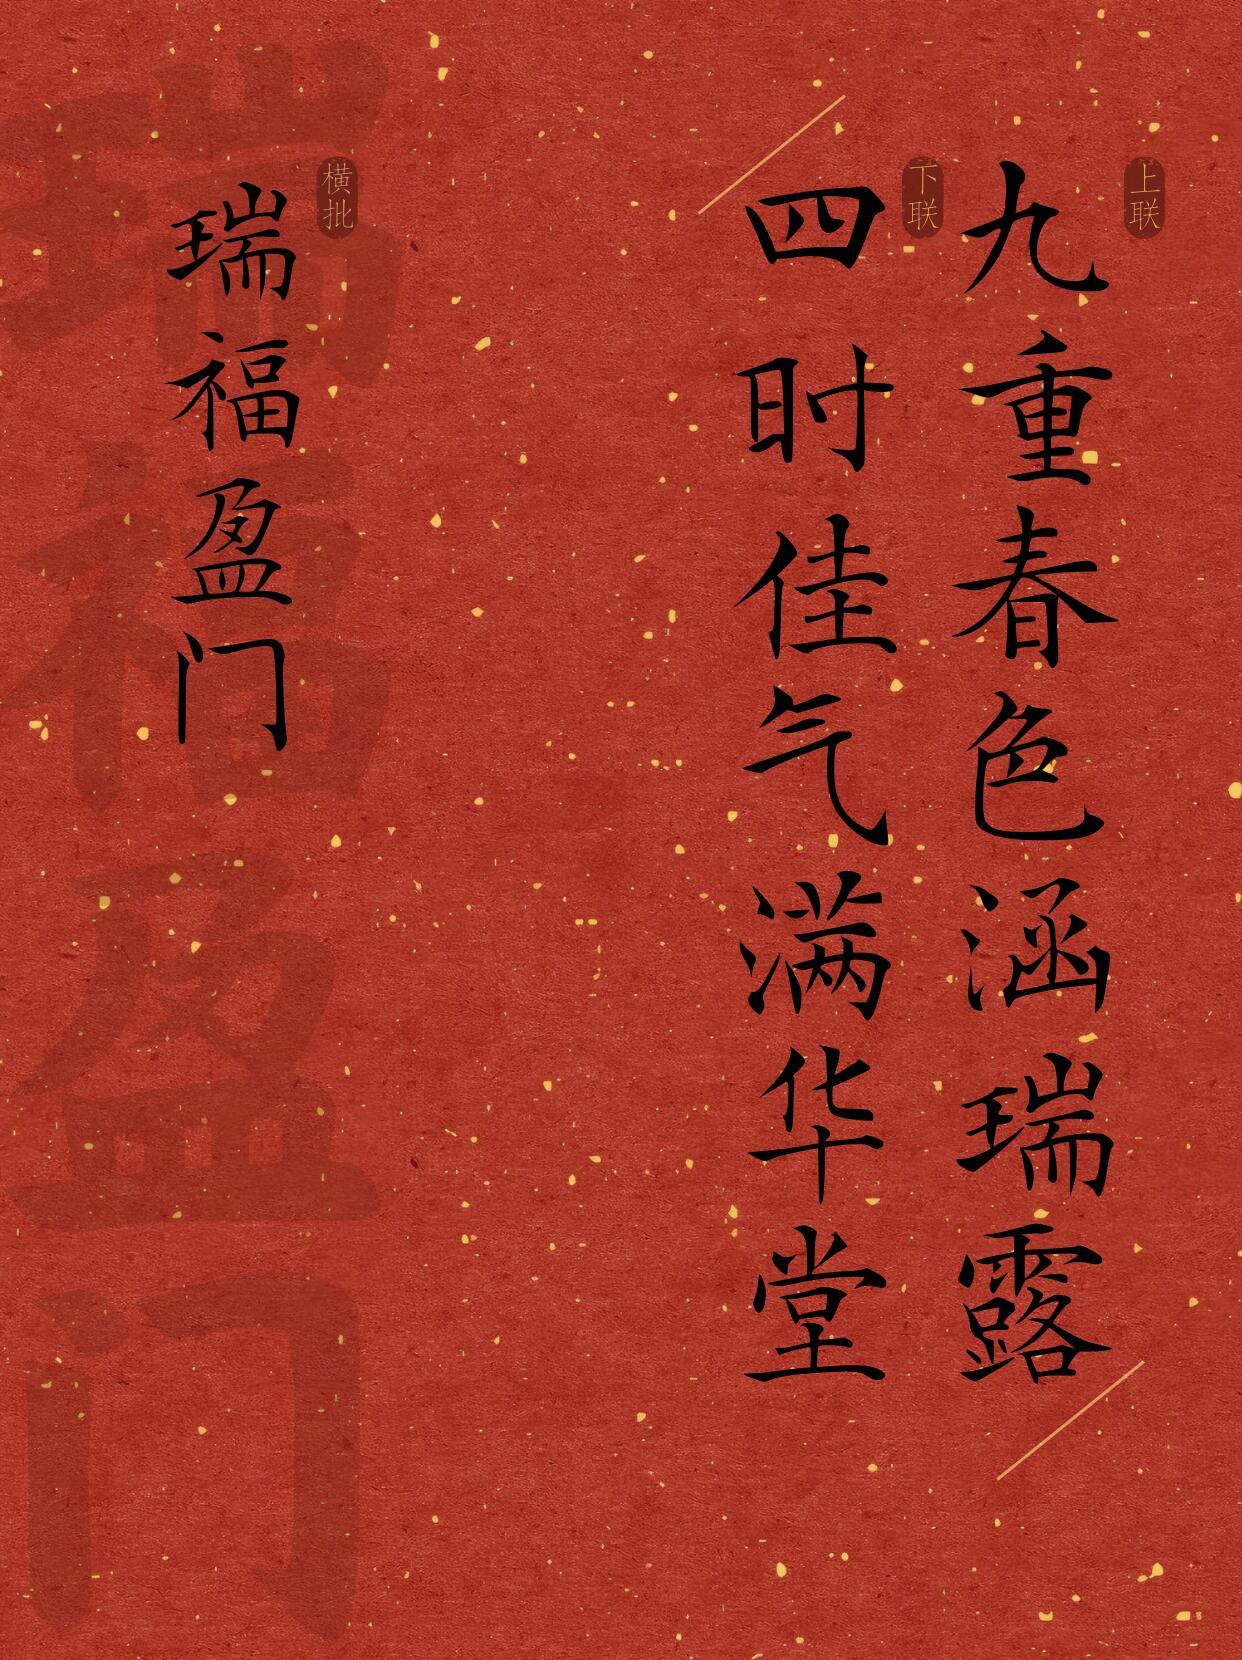 上联
九重春色涵瑞露
下联
四时佳气满华堂
横批
瑞福盈门
瑞福盈门